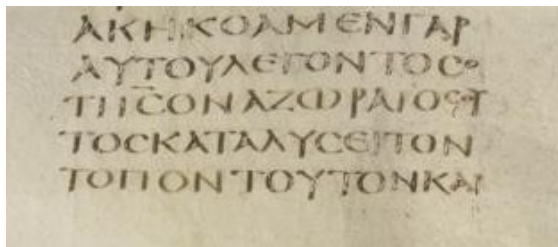 ΑΚΗΚΟΑΜΕΝΓΑΡ
ΑΥΤΟΥΛΕΓΟΝΤΟϹΟ
ΤΙΙ̅Ϲ̅ΟΝΑΖΩΡΑΙΟϹΟΥ
ΤΟϹΚΑΤΑΛΥϹΕΙΤΟΝ
ΤΟΠΟΝΤΟΥΤΟΝΚΑΙ